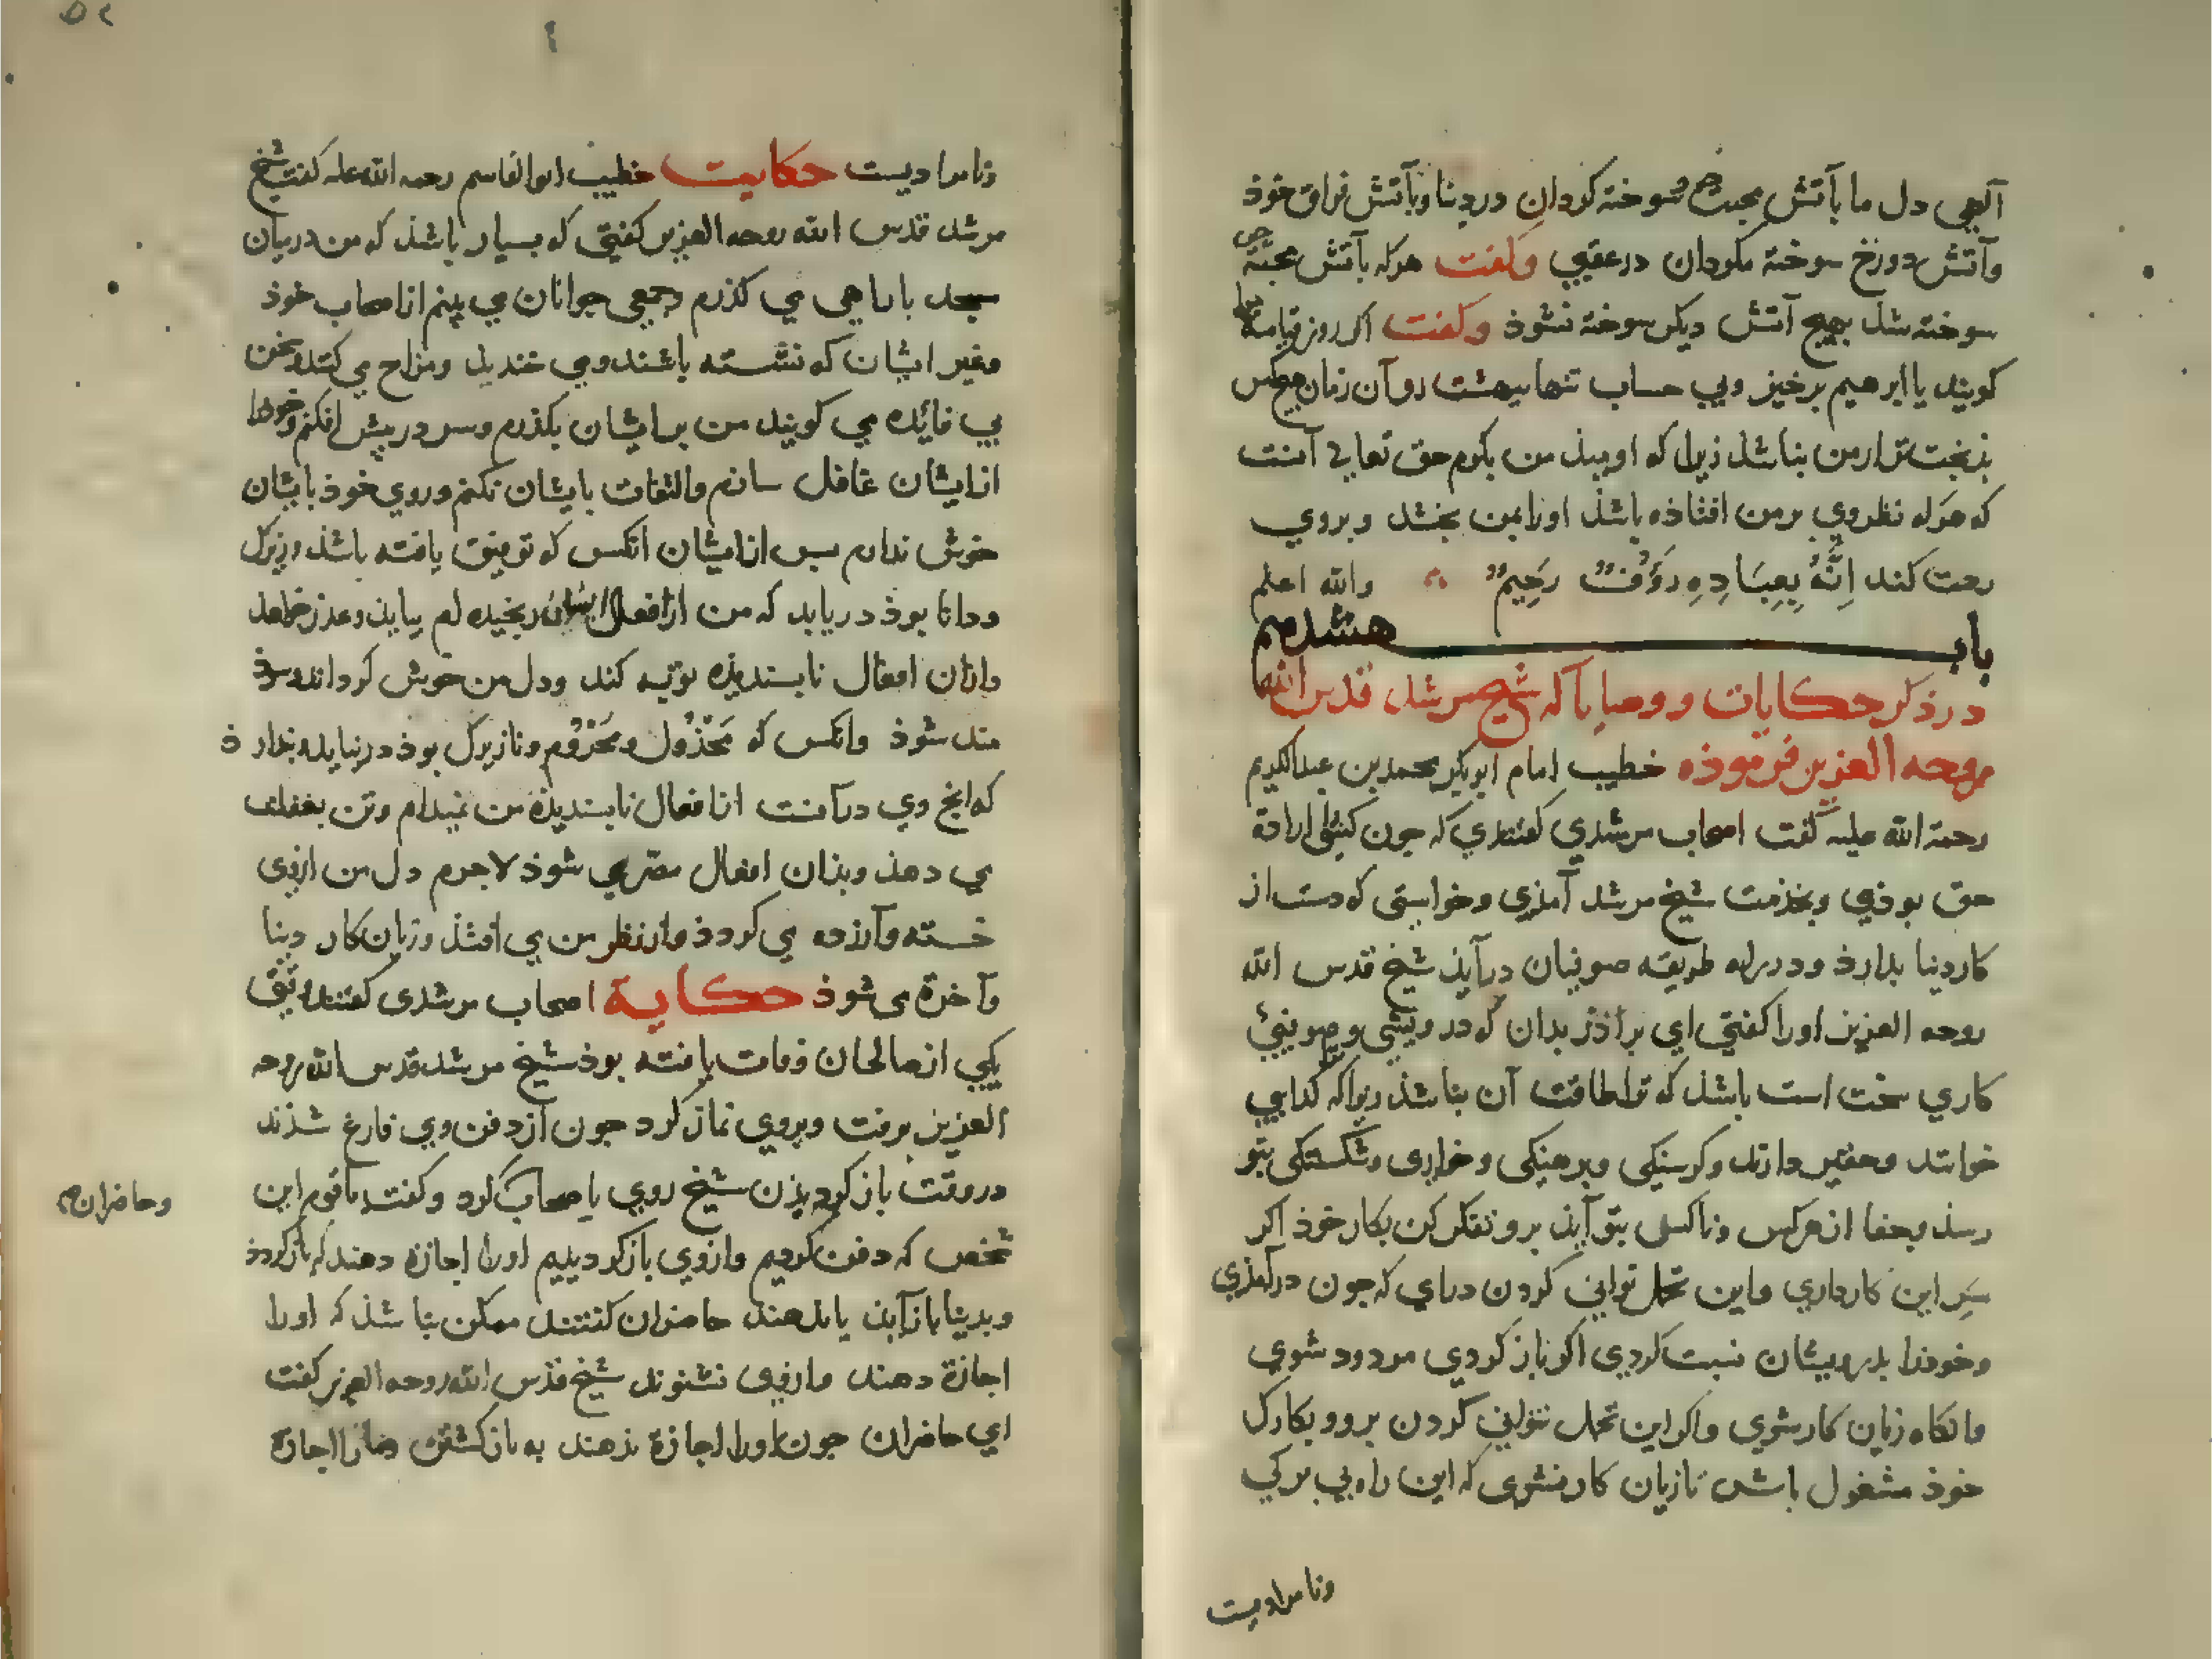 آلهی دل ما بآتش محبت خوذ سوخته کردان در دنیا و بآتش فراق خوذ
وآتش دوزخ سوخته مکردان در عقبی وکفت هرکه بآتش محبة حق
سوخته شد بهیچ آتش دیکر سوخته نشوذ وکفت اکر روز قیامت مرا
کویند یا ابرهیم برخیز وبی حساب تنها ببهشت رو آن زمان هیچکس
بذبخت تر از من نباشد زیرا که اومید من بکرم حق تعالی آنست
که هرکه نظر وی بر من افتاذه باشذ اورا بمن بخشد وبروی
رحمت کند اِنَّهُ بِعِبَادِهِ رَؤُفٌ رَحِیمٌ والله اعلم
باب هشدهم
در ذکر حکایات ووصایا که شیخ مرشد قدس الله
روحه العزیز فرموذه خطیب امام ابوبکر محمد بن عبدالکریم
رحمة الله علیه کفت اصحاب مرشدی کفتندی که جون کسی را ارادة
حق بوذی وبخذمت شیخ مرشد آمذی وخواستی که دست از
کار دنیا بدارذ ودر راه طریقه صوفیان درآیذ شیخ قدس الله
روحه العزیز اورا کفتی ای براذر بدان که درویشی وصوفیئی
کاری سخت است باشد که ترا طاقت آن نباشذ زیرا که کدایی
خوانند وحقیر دارند وکرسنکی وبرهنکی وخواری وشکستکی بتو
رسذ وجفا از هرکس وناکسی بتو آیذ برو وتفکر کن بکار خوذ اکر
سَرِ این کار داری واین تحمل توانی کردن درآی که جون درآمذی
وخوذرا بدرویشان نسبت کردی اکر باز کردی مردود شوی
وانکاه زیان کار شوی واکر این تحمل نتوانی کردن برو وبکار کل
خوذ مشغول باش تا زیان کار نشوی که این راه بی برکی
ونامرادیست
ونامرادیست حکایت خطیب ابوالقاسم رحمه الله علیه کفت شیخ
مرشد قدس الله روحه العزیز کفتی که بسیار باشذ که من در میان
مسجد با راهی می کذرم وجمعی جوانان می بینم از اصحاب خوذ
وغیر ایشان که نشسته باشند ومی خندند ومزاح می کنند وسخن
بی فائده می کویند من بر ایشان بکذرم وسر در پیش افکنم وخودرا
از ایشان غافل سازم والتفات بایشان نکنم وروی خوذ بایشان
خوش ندارم پس از ایشان انکس که توفیق یافته باشذ وزیرک
ودانا بوذ دریابد که من از افعال ایشان رنجیده ام بیایذ وعذر خواهد
وازان افعال نابسندیذه توبه کند ودل من خوش کرداند وسوذ
مند شوذ وانکس که مَخْذُول ومَحْرُوم ونازیرک بوذ درنیابد وبندارذ
که انج وی درآنست از افعال نابسندیذه من نمیدانم وتن بغفلت
می دهذ وبذان افعال مصر می شوذ لاجرم دل من ازوی
خسته وآزرده می کردذ واز نظر من می افتذ وزیان کار دنیا
وآخرة می شوذ حکایة اصحاب مرشدی کفتند وقتی
یکی از صالحان وفات یافته بوذ شیخ مرشد قدس الله روحه
العزیز برفت وبروی نماز کرد جون از دفن وی فارغ شذند
در وقت باز کردیذن شیخ روی با صحاب کرد وکفت یا قوم این
وحاضران
شخص که دفن کردیم وازوی باز کردیدیم اورا اجازة دهند که باز کردذ
وبدنیا باز آیذ یا ندهند حاضران کفتند ممکن نباشذ که اورا
اجازة دهند وازوی نشنوند شیخ قدس الله روحه العزیز کفت
ای حاضران جون اورا اجازة ندهند به باز کشتن شمارا اجازة